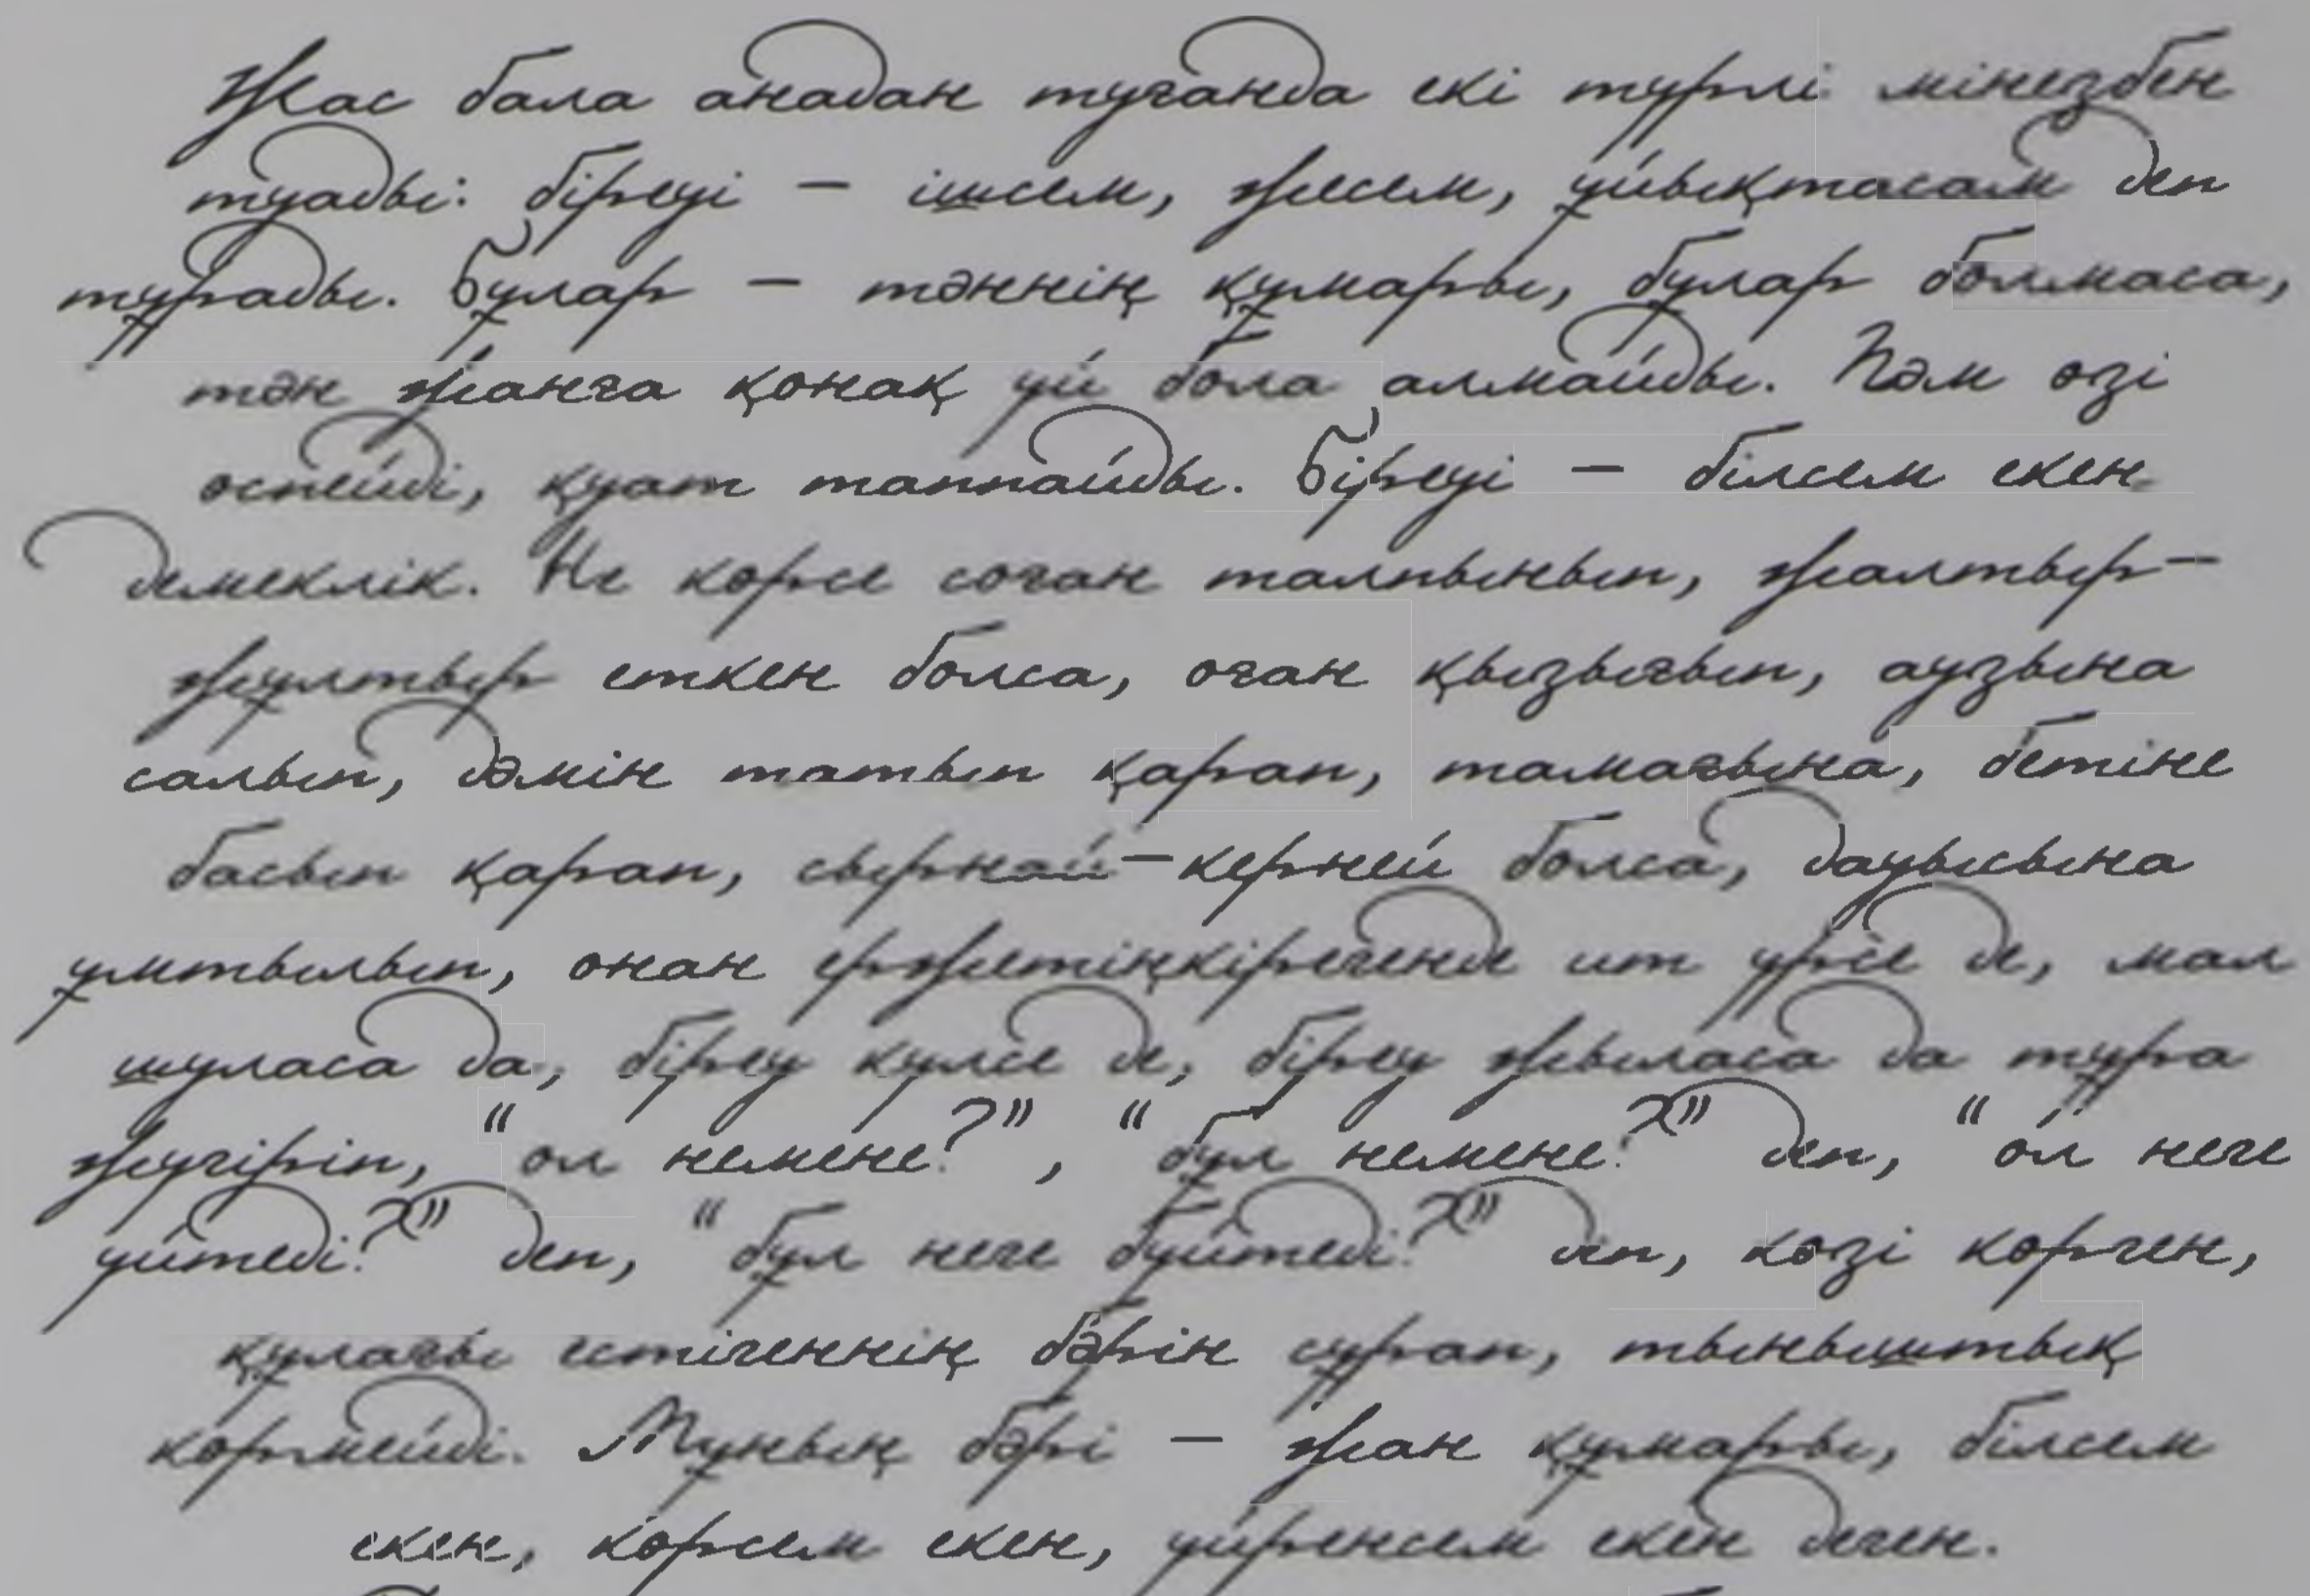 Жас бала анадан туғанда екі түрлі мінезбен
туады: біреуі – ішсем, жесем, ұйықтасам деп
тұрады. Бұлар – тәннің құмары, бұлар болмаса,
тән жанға қонақ үй бола алмайды. Һәм өзі
өспейді, қуат таппайды. Біреуі – білсем екен
демеклік. Не көрсе соған талпынып, жалтыр-
жұлтыр еткен болса, оған қызығып, аузына
салып, дәмін татып қарап, тамағына, бетіне
басып қарап, сырнай-керней болса, дауысына
ұмтылып, онан ержетіңкірегенде ит үрсе де, мал
шуласа да, біреу күлсе де, біреу жыласа да тұра
жүгіріп, "ол немене?", "бұл немене?" деп, "ол неге
үйтеді?" деп, "бұл неге бүйтеді?" деп, көзі көрген,
құлағы естігеннің бәрін сұрап, тыныштық
көрмейді. Мұның бәрі – жан құмары, білсем
екен, көрсем екен, үйренсем екен деген.